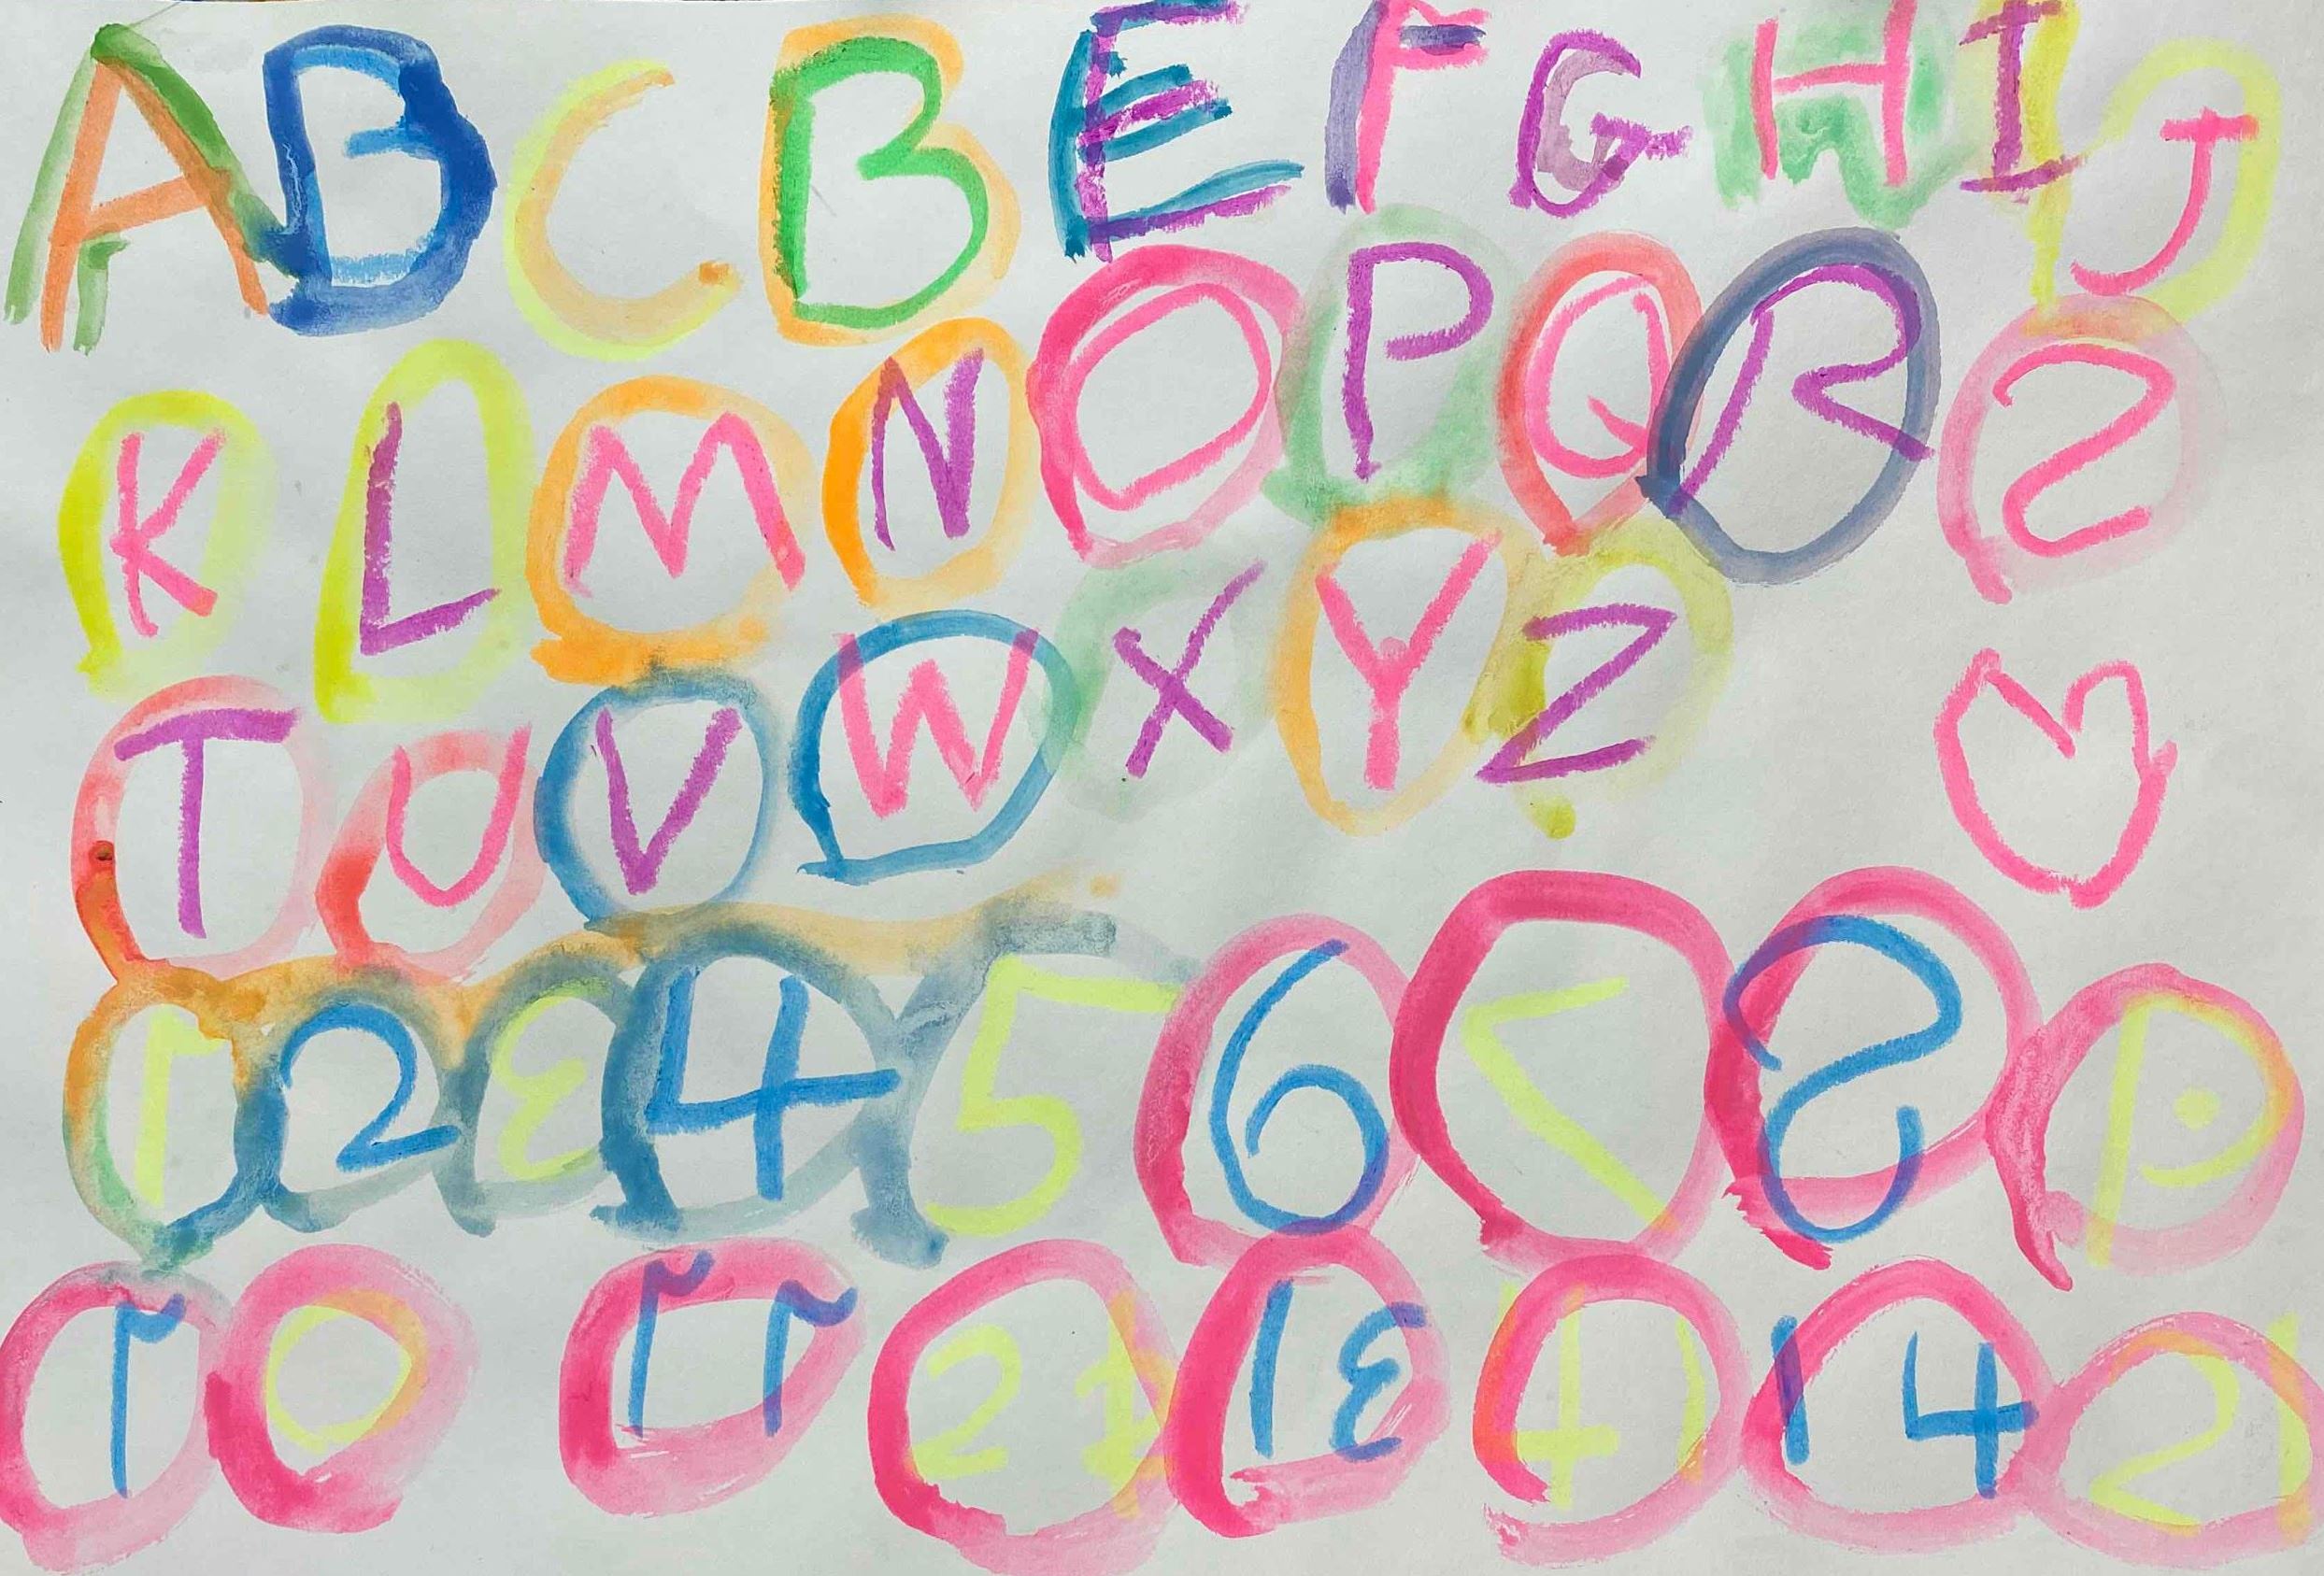 A B C B E F G H I J
K L M N O P Q R S
T U V W X Y Z
1 2 3 4 5 6 7 8 9
1 0 11 21 13 41 14 21